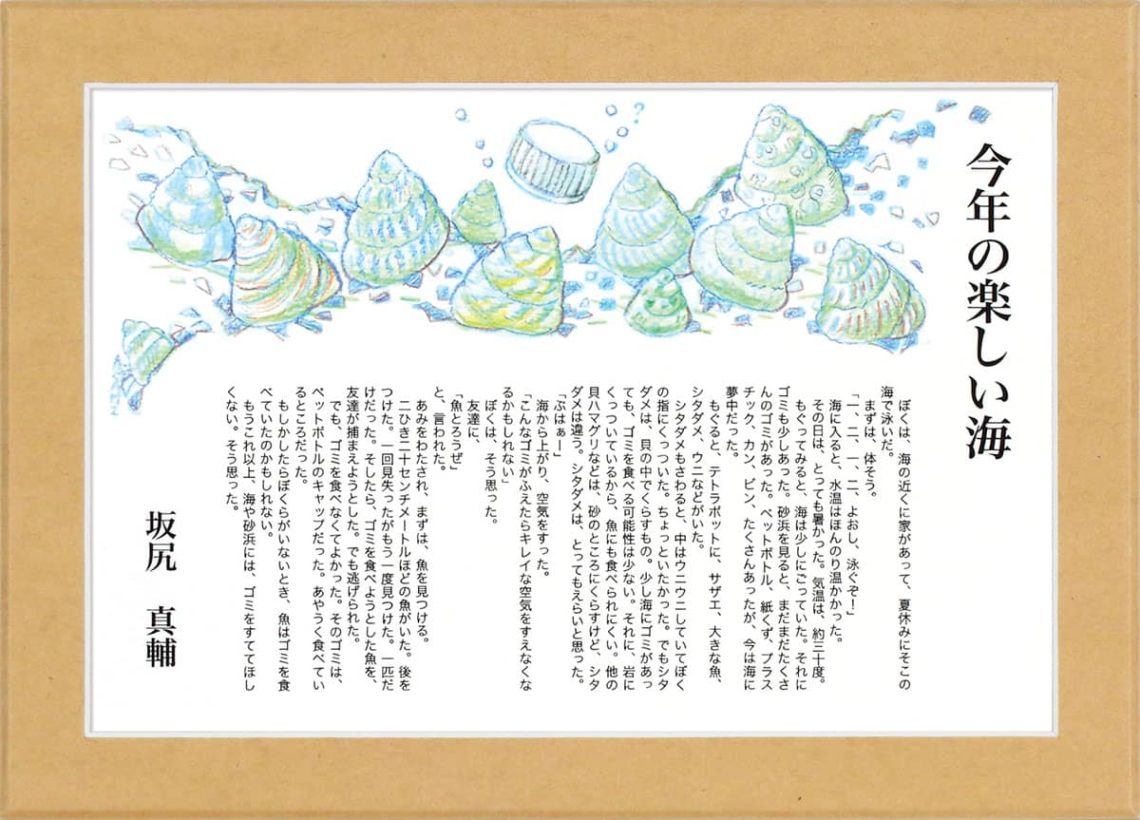 今年の楽しい海
ぼくは、海の近くに家があって、夏休みにそこの
海で泳いだ。
まずは、体そう。
「一、二、一、二、よおし、泳ぐぞー!」
海に入ると、水温はほんのり温かかった。
その日は、とっても暑かった。気温は、約三十度。
もぐってみると、海は少しにごっていた。それに
ゴミも少しあった。砂浜を見ると、まだまだたくさ
んのゴミがあった。ペットボトル、紙くず、プラス
チック、カン、ビン、たくさんあったが、今は海に
夢中だった。
もぐると、テトラポットに、サザエ、大きな魚、
シタダメ、ウニなどがいた。
シタダメもさわると、中はウニウニしていてぼく
の指にくっついた。ちょっといたかった。でもシタ
ダメは、貝の中でくらすもの。少し海にゴミがあっ
ても、ゴミを食べる可能性は少ない。それに、岩に
くっついているから、魚にも食べられにくい。他の
貝ハマグリなどは、砂のところにくらすけど、シタ
ダメは違う。シタダメは、とってもえらいと思った。
「ぶはぁー」
海から上がり、空気をすった。
「こんなゴミがふえたらキレイな空気をすえなくな
るかもしれない」
ぼくは、そう思った。
友達に、
「魚とろうぜ」
と、言われた。
あみをわたされ、まずは、魚を見つける。
二ひき二十センチメートルほどの魚がいた。後を
つけた。一回見失ったがもう一度見つけた。一匹だ
けだった。そしたら、ゴミを食べようとした魚を、
友達が捕まえようとした。でも逃げられた。
でも、ゴミを食べなくてよかった。そのゴミは、
ペットボトルのキャップだった。あやうく食べてい
るところだった。
もしかしたらぼくらがいないとき、魚はゴミを食
べていたのかもしれない。
もうこれ以上、海や砂浜には、ゴミをすててほし
くない。そう思った。
坂尻 真輔